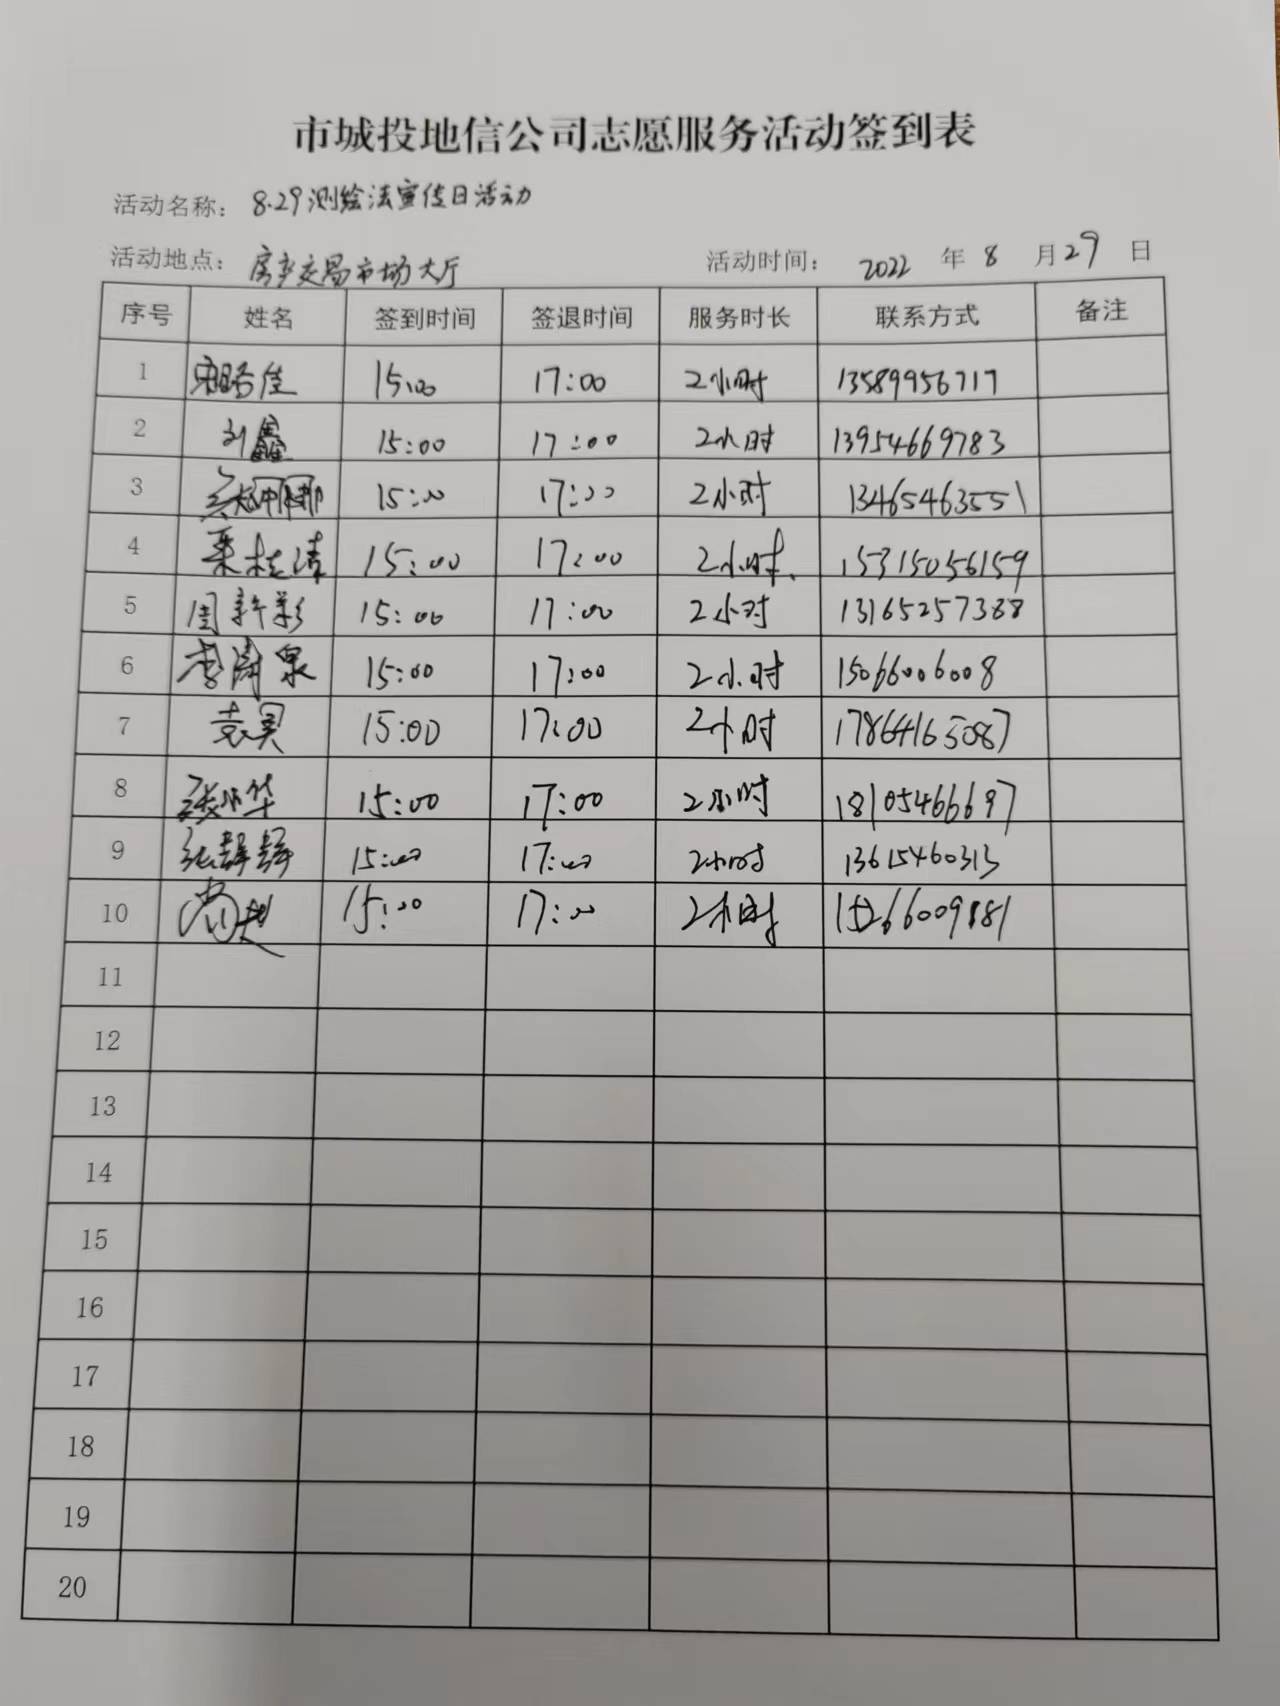 市城投地信公司志愿服务活动签到表
活动名称： 8.29测绘法宣传日活动
活动地点： 房产交易市场大厅 活动时间： 2022 年 8 月 29 日
序号 姓名 签到时间 签退时间 服务时长 联系方式 备注
1 15:00 17:00 2小时 13589956717
2 刘鑫 15:00 17:00 2小时 13954669783
3 15:00 17:00 2小时 13465463551
4 15:00 17:00 2小时. 15315056159
5 周新彩 15:00 17:00 2小时 13165257388
6 李海泉 15:00 17:00 2小时 15066006008
7 袁昊 15:00 17:00 2小时 17864165087
8 15:00 17:00 2小时 18105466697
9 张静静 15:00 17:00 2小时 13615460313
10 15:00 17:00 2小时 15266009881
11
12
13
14
15
16
17
18
19
20